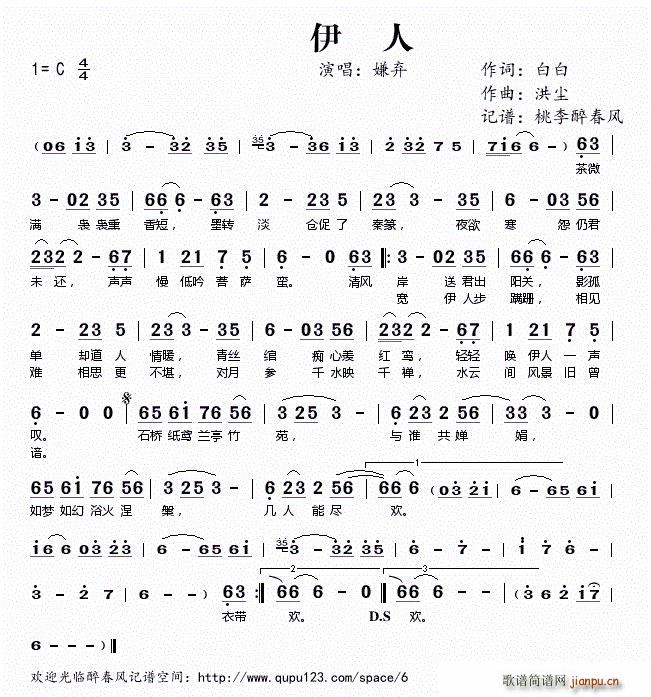 伊 人
1= C 4/4 演唱：嫌弃 作词：白白
作曲：洪尘
记谱：桃李醉春风
( 0 6 i 3 | 3 - 3 2 3 5 | 3 - 3 6 i 3 | 2 3 2 7 5 | 7 i 6 6 - ) 6 3 |
茶微
3 - 0 2 3 5 | 6 6 6 - 6 3 | 2 - 0 2 3 5 | 2 3 3 - 3 5 | 6 - 0 3 5 6 |
满 袅袅重 香短，墨转 淡 仓促了 秦篆，夜欲 寒 怨仍君
2 3 2 2 - 6 7 | 1 2 1 7 5 | 6 - 0 6 3 |: 3 - 0 2 3 5 | 6 6 6 - 6 3 |
未还，声声 慢低吟菩萨 蛮。 清风 岸 送君出 阳关，影孤
宽 伊人步 蹒跚，相见
2 - 2 3 5 | 2 3 3 - 3 5 | 6 - 0 3 5 6 | 2 3 2 2 - 6 7 | 1 2 1 7 5 |
单 却道人 情暖，青丝 绾 痴心羡 红鸾，轻轻 唤伊人一声
难 相思更 不堪，对月 参 千水映 千禅，水云 间风景旧曾
6 - 0 0 | 6 5 6 i 7 6 5 6 | 3 2 5 3 - | 6 2 3 2 5 6 | 3 3 3 - 0 |
叹。 石桥纸鸢兰亭竹 苑， 与谁共婵 娟，
谙。
6 5 6 i 7 6 5 6 | 3 2 5 3 - | 6 2 3 2 5 6 | 6 6 6 - ( 0 3 2 i | 6 - 6 5 6 i |
1
如梦如幻浴火涅 槃， 几人能尽 欢。
i 6 6 0 3 2 3 | 6 - 6 5 6 i | 3 - 3 2 3 5 | 6 - 7 - | i 7 6 - |
3 - 2 7 | 6 - - ) 6 3 :| 6 6 6 - 0 | 6 6 6 - ( 3 | 2 3 2 i 7 |
2 3
衣带 欢。 D.S 欢。
6 - - - ) ||
欢迎光临醉春风记谱空间：http://www.qupu123.com/space/6
歌谱简谱网
jianpu.cn